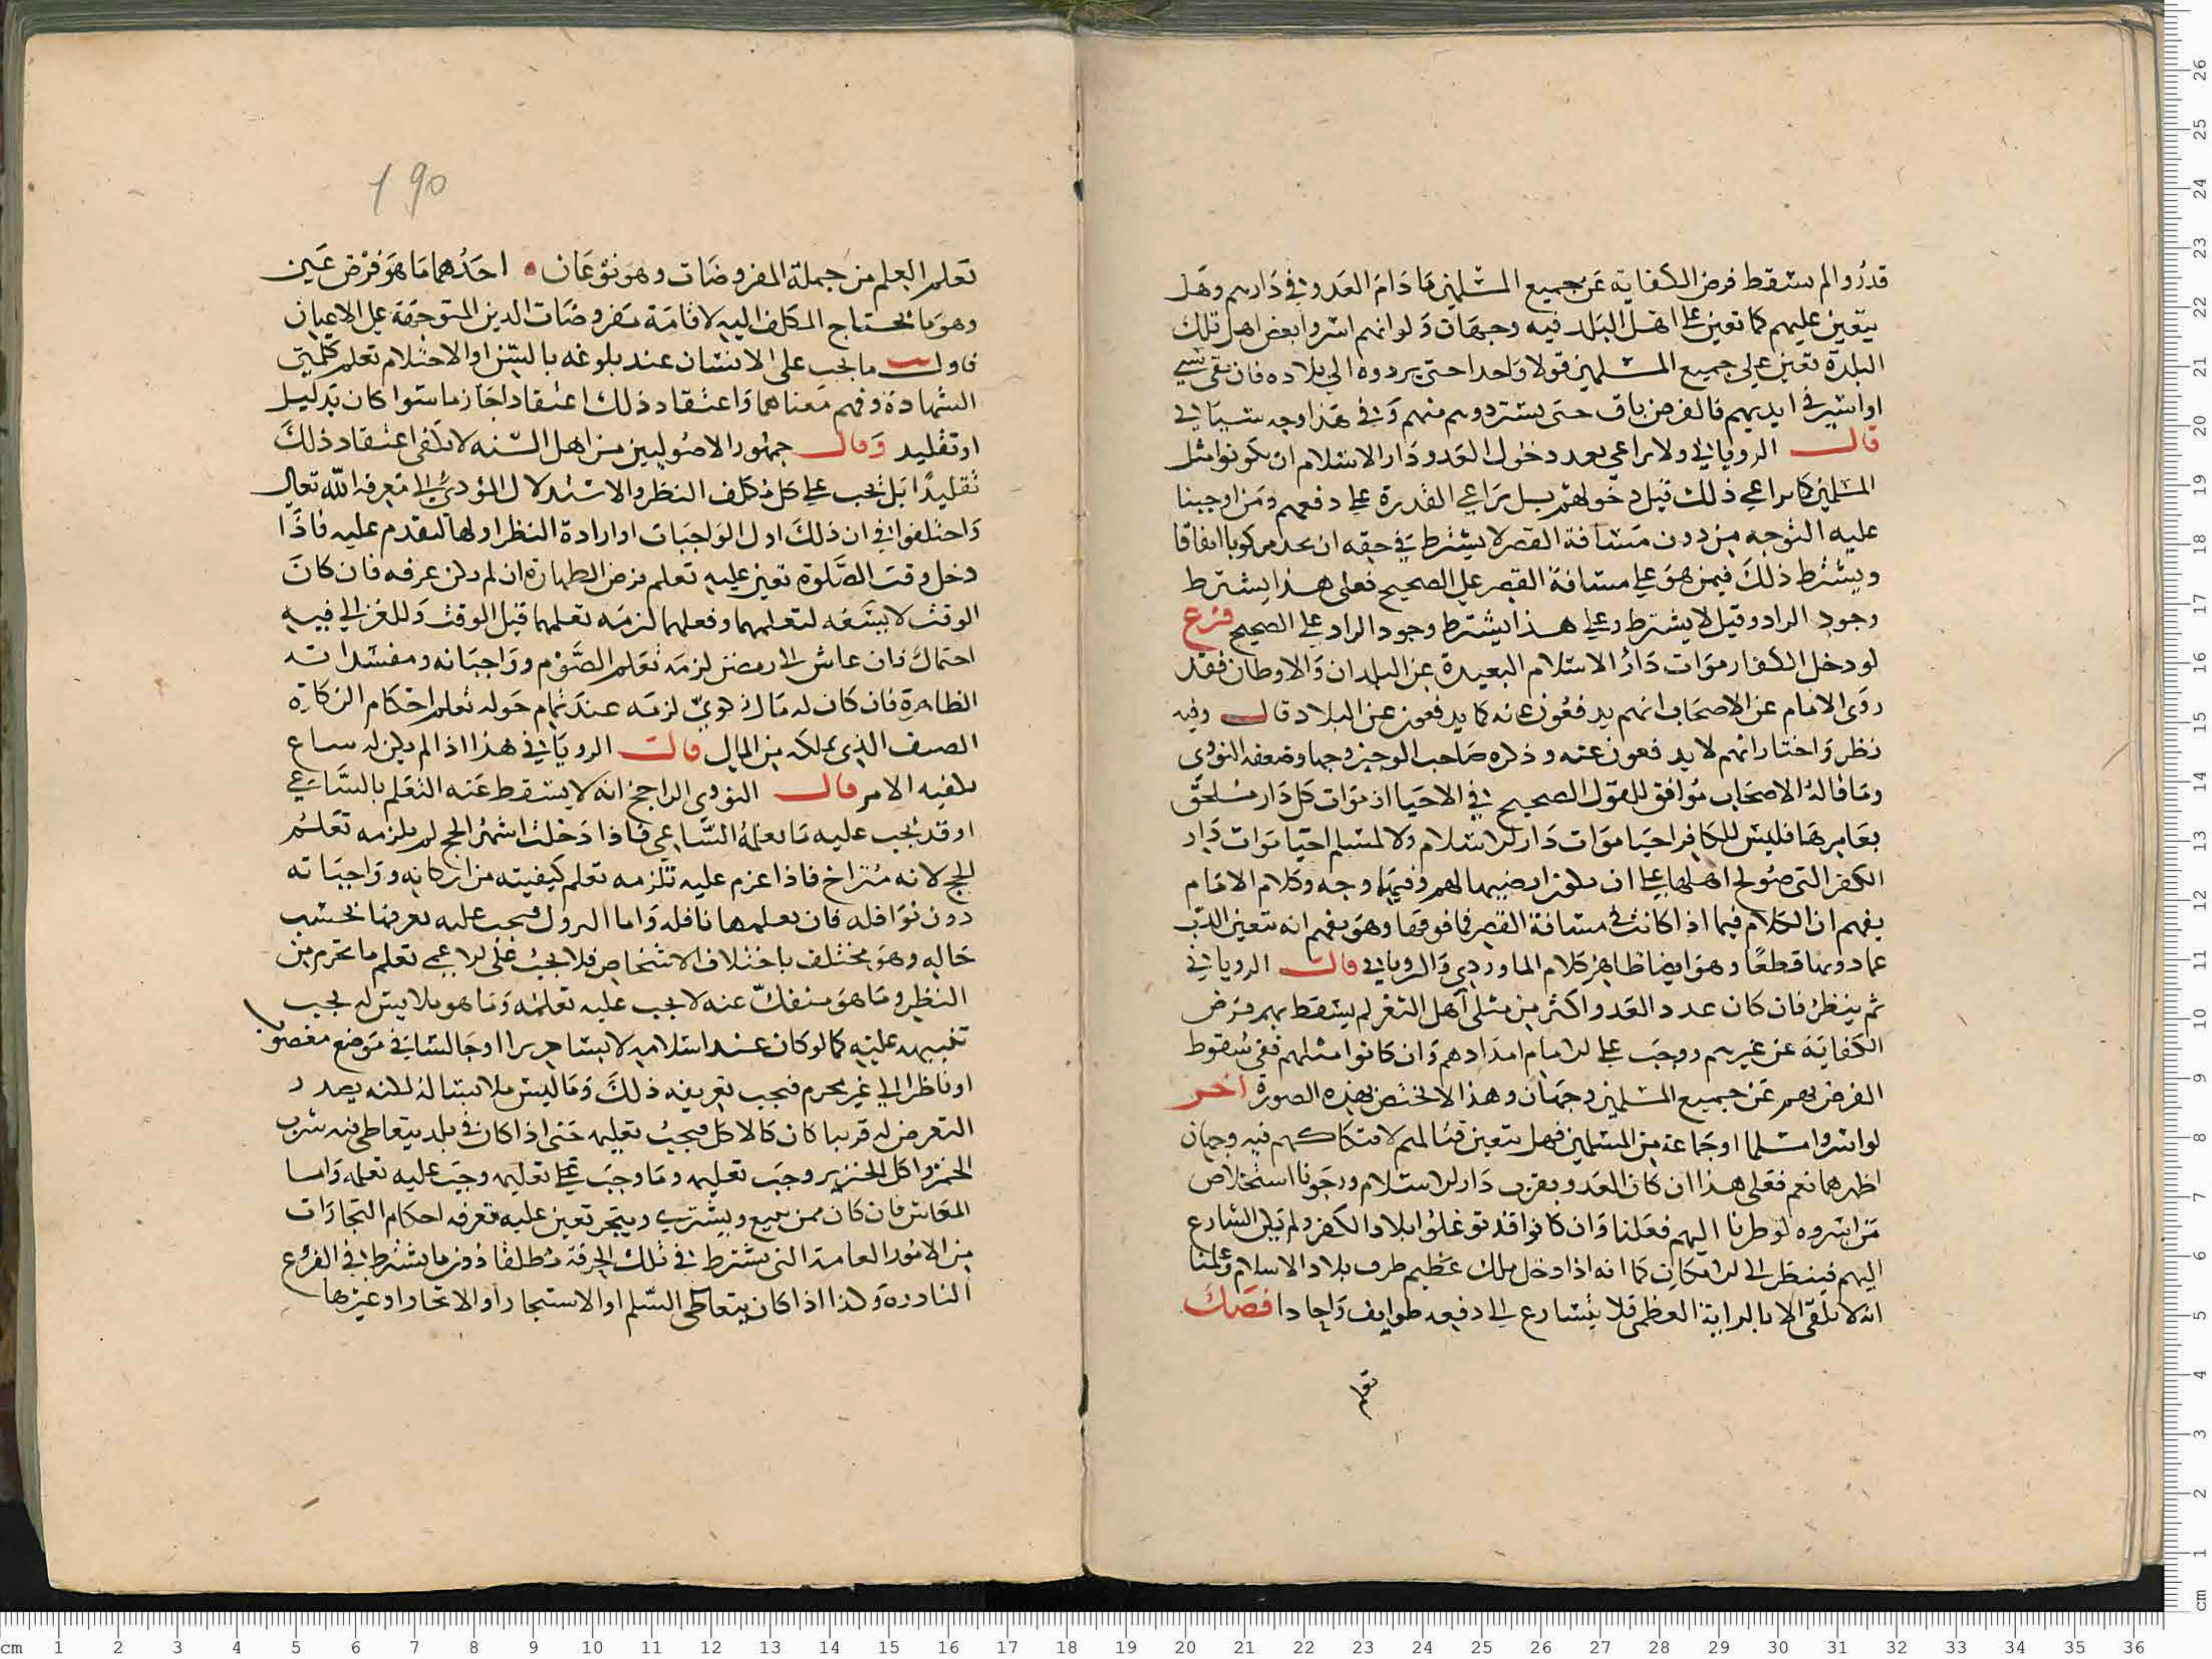 قدروا لم يسقط فرض الكفاية عن جميع المسلمين ما دام العدو في دارهم وهل
يتعين عليهم كما تعين على اهل البلد فيه وجهان ولو انهم اسروا بعض اهل تلك
البلدة تعين على جميع المسلمين قولا واحدا حتى يردوه الى بلاده فان بقي سبي
او اسير في ايديهم فالفرض باق حتى يستردوهم منهم وفي هذا وجه سياتي
قال الروياني ولا يراعي بعد دخول العدو دار الاسلام ان يكونوا مثل
المسلمين كما يراعي ذلك قبل دخولهم بل يراعي القدرة على دفعهم ومن اوجبنا
عليه التوجه من دون مسافة القصر لا يشترط في حقه ان يجد مركوبا اتفاقا
ويشترط ذلك فيمن هو على مسافة القصر على الصحيح فعلى هذا يشترط
وجود الزاد وقيل لا يشترط وعلى هذا يشترط وجود الزاد على الصحيح فرع
لو دخل الكفار موات دار الاسلام البعيدة عن البلدان والاوطان فقد
روى الامام عن الاصحاب انهم يدفعون عنه كما يدفعون عن البلاد قال وفيه
نظر واختار انهم لا يدفعون عنه وذكره صاحب الوجيز وجها وضعفه النووي
وما قاله الاصحاب موافق للقول الصحيح في الاحيا ان موات كل دار ملحق
بعامرها فليس للكافر احيا موات دار الاسلام ولا لمسلم احيا موات دار
الكفر التي صولح اهلها على ان يكون اراضيها لهم وفيها وجه وكلام الامام
يفهم ان الكلام فيما اذا كانت في مسافة القصر فما فوقها وهو يفهم انه يتعين الذب
عما دونها قطعا وهو ايضا ظاهر كلام الماوردي والروياني قال الروياني
ثم ينظر فان كان عدد العدو اكثر من مثلي اهل الثغر لم يسقط بهم فرض
الكفاية عن غيرهم ووجب على الامام امدادهم وان كانوا مثلهم ففي سقوط
الفرض بهم عن جميع المسلمين وجهان وهذا لا يختص بهذه الصورة اخر
لو اسروا مسلما او جماعة من المسلمين فهل يتعين قتالهم لافتكاكهم فيه وجهان
اظهرهما نعم فعلى هذا ان كان العدو بقرب دار الاسلام ورجونا استخلاص
من اسروه لو طرنا اليهم فعلنا وان كانوا قد توغلوا بلاد الكفر ولم يمكن التسارع
اليهم فينظر الى الامكان كما انه اذا دخل ملك عظيم طرف بلاد الاسلام وعلمنا
انه لا يلقى الا بالراية العظمى فلا يتسارع الى دفعه طوايف واحادا فصل
تعلم
190
تعلم العلم من جملة المفروضات وهو نوعان احدهما ما هو فرض عين
وهو ما يحتاج المكلف اليه لاقامة مفروضات الدين المتوجهة على الاعيان
فاول ما يجب على الانسان عند بلوغه بالسن او الاحتلام تعلم كلمتي
الشهادة وفهم معناهما واعتقاد ذلك اعتقادا جازما سوا كان بدليل
او تقليد وقال جمهور الاصوليين من اهل السنه لا يكفي اعتقاد ذلك
تقليدا بل يجب على كل مكلف النظر والاستدلال المؤدي الى معرفة الله تعالى
واختلفوا في ان ذلك اول الواجبات او ارادة النظر اولها لتقدم عليه فاذا
دخل وقت الصلوة تعين عليه تعلم فرض الطهارة ان لم يكن عرفه فان كان
الوقت لا يسعه لتعلمهما وفعلهما لزمه تعلمهما قبل الوقت وللغزالي فيه
احتمال فان عاش الى رمضن لزمه تعلم الصوم وواجباته ومفسداته
الظاهرة فان كان له مال زكوي لزمه عند تمام حوله تعلم احكام الزكاة
الصنف الذي يملكه من المال قال الروياني هذا اذا لم يكن له ساع
يكفيه الامر قال النووي الراجح انه لا يسقط عنه التعلم بالساعي
اوقد يجب عليه ما يعلمه الساعي فاذا دخلت اشهر الحج لم يلزمه تعلم
الحج لانه متراخ فاذا عزم عليه تلزمه تعلم كيفيته من اركانه وواجباته
دون نوافله فان تعلمها نافله واما التروك فيجب عليه تعرفها بحسب
حاله وهو يختلف باختلاف الاشخاص فلا يجب على الاعمى تعلم ما يحرم من
النظر وما هو منفك عنه لا يجب عليه تعلمه وما هو ملابس له يجب
تنبيهه عليه كما لو كان عند اسلامه لابسا حريرا او جالسا في موضع مغصوب
او ناظرا الى غير محرم فيجب تعريفه ذلك وما ليس ملابسا له لكنه بصدد
التعرض له قريبا كان كالاكل فيجب تعليمه حتى اذا كان في بلد يتعاطى فيه شرب
الخمر واكل الخنزير وجب تعليمه وما وجب على تعليمه وجب عليه تعلمه واما
المعاش فان كان ممن يبيع ويشتري ويتجر تعين عليه معرفة احكام التجارات
من الامور العامة التي تشترط في تلك الحرفة مطلقا دون ما يشترط في الفرع
النادره وكذا اذا كان يتعاطى السلم او الاستيجار او الاتجار او غيرها